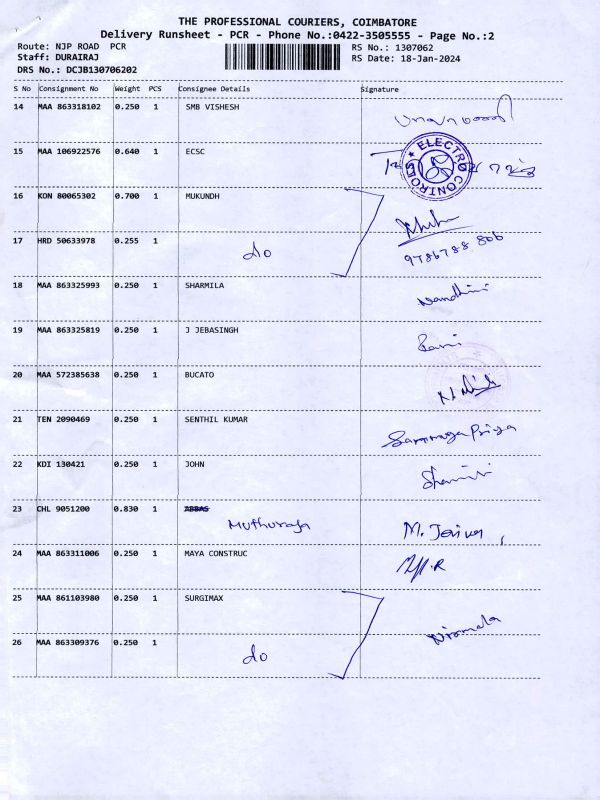 THE PROFESSIONAL COURIERS, COIMBATORE
Delivery Runsheet - PCR - Phone No.:0422-3505555 - Page No.:2
Route: NJP ROAD PCR RS No.: 1307062
Staff: DURAIRAJ RS Date: 18-Jan-2024
DRS No.: DCJB130706202
S No Consignment No Weight PCS Consignee Details Signature
14 MAA 863318102 0.250 1 SMB VISHESH
15 MAA 106922576 0.640 1 ECSC ELECTRO CONTROLS
16 KON 80065302 0.700 1 MUKUNDH
9786788 806
17 HRD 50633978 0.255 1 do
18 MAA 863325993 0.250 1 SHARMILA Nandhini
19 MAA 863325819 0.250 1 J JEBASINGH Rani
20 MAA 572385638 0.250 1 BUCATO
21 TEN 2090469 0.250 1 SENTHIL KUMAR
22 KDI 130421 0.250 1 JOHN
23 CHL 9051200 0.830 1 ABBAS
Muthuraja
24 MAA 863311006 0.250 1 MAYA CONSTRUC
25 MAA 861103980 0.250 1 SURGIMAX
Nirmala
26 MAA 863309376 0.250 1 do